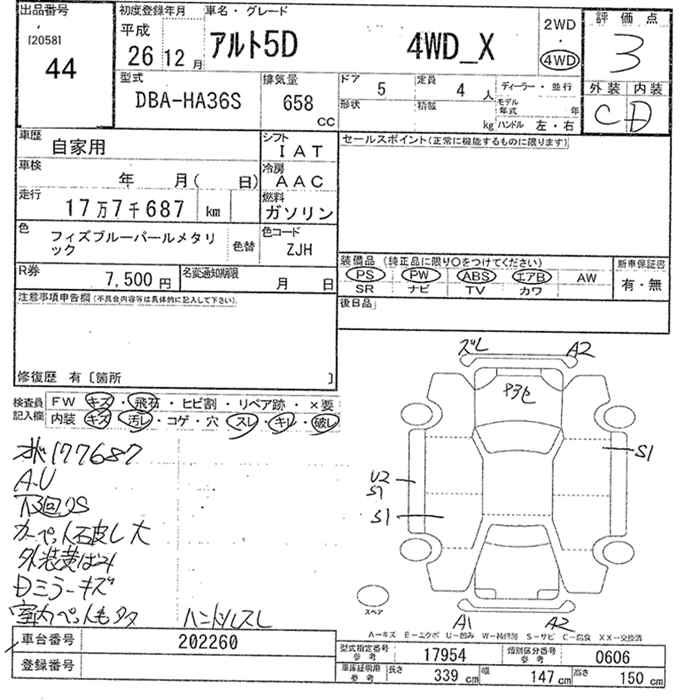 出品番号
[2058]
44
初度登録年月
平成
26 12 月
車名・グレード
アルト5D 4WD_X
2WD
・
4WD
評価点
3
外装 内装
C D
型式
DBA-HA36S
排気量
658
cc
ドア
5
定員
4 人
形状
積載
kg
ディーラー・並行
モデル年式 年
ハンドル 左・右
車歴
自家用
シフト
IAT
セールスポイント(正常に機能するものに限ります)
車検
年 月( 日)
冷房
AAC
走行
17万7千687 km
燃料
ガソリン
色
フィズブルーパールメタリ
ック
色替
色コード
ZJH
R券
7,500円
名変通知期限
月 日
装備品 (純正品に限り○をつけてください)
PS PW ABS エアB AW
SR ナビ TV カワ
新車保証書
有・無
後日品
注意事項申告欄(不具合内容等は具体的に記入して下さい)
修復歴 有〔箇所 〕
検査員
記入欄
FW キズ・飛石・ヒビ割・リペア跡・×要
内装 キズ・汚レ・コゲ・穴・スレ・キレ・破レ
177687
A.U
下回りS
外装黄ばみ
Dミラーキズ
ハンドルスレ
ズレ
A2
S1
U2
S1
S1
スペア
A1
A2
A-キズ E-エクボ U-凹み W-補修跡 S-サビ C-腐食 XX-交換済
車台番号
202260
登録番号
型式指定番号
参考
17954
類別区分番号
参考
0606
車庫証明用
参考
長さ
339 cm
幅
147 cm
高さ
150 cm